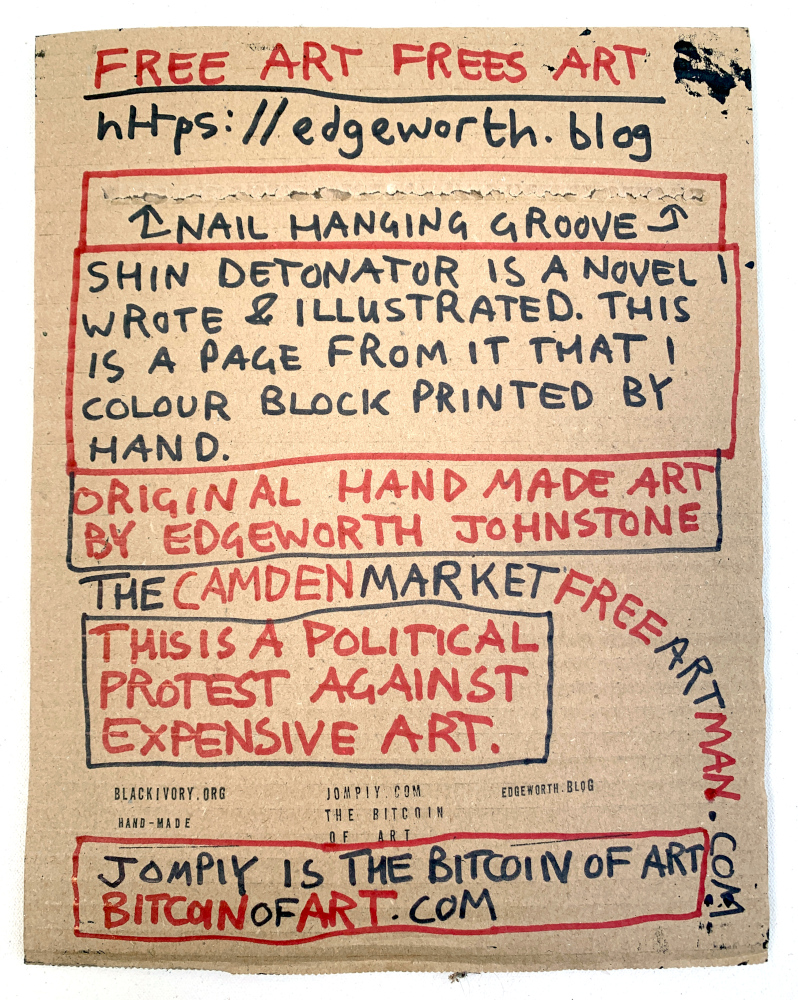 FREE ART FREES ART
https://edgeworth.blog
↑NAIL HANGING GROOVE↑
SHIN DETONATOR IS A NOVEL I
WROTE & ILLUSTRATED. THIS
IS A PAGE FROM IT THAT I
COLOUR BLOCK PRINTED BY
HAND.
ORIGINAL HAND MADE ART
BY EDGEWORTH JOHNSTONE
THE CAMDEN MARKET FREE ART MAN.COM
THIS IS A POLITICAL
PROTEST AGAINST
EXPENSIVE ART.
BLACKIVORY.ORG JOMPIY.COM EDGEWORTH.BLOG
HAND-MADE THE BITCOIN
OF ART
JOMPIY IS THE BITCOIN OF ART
BITCOINOFART.COM